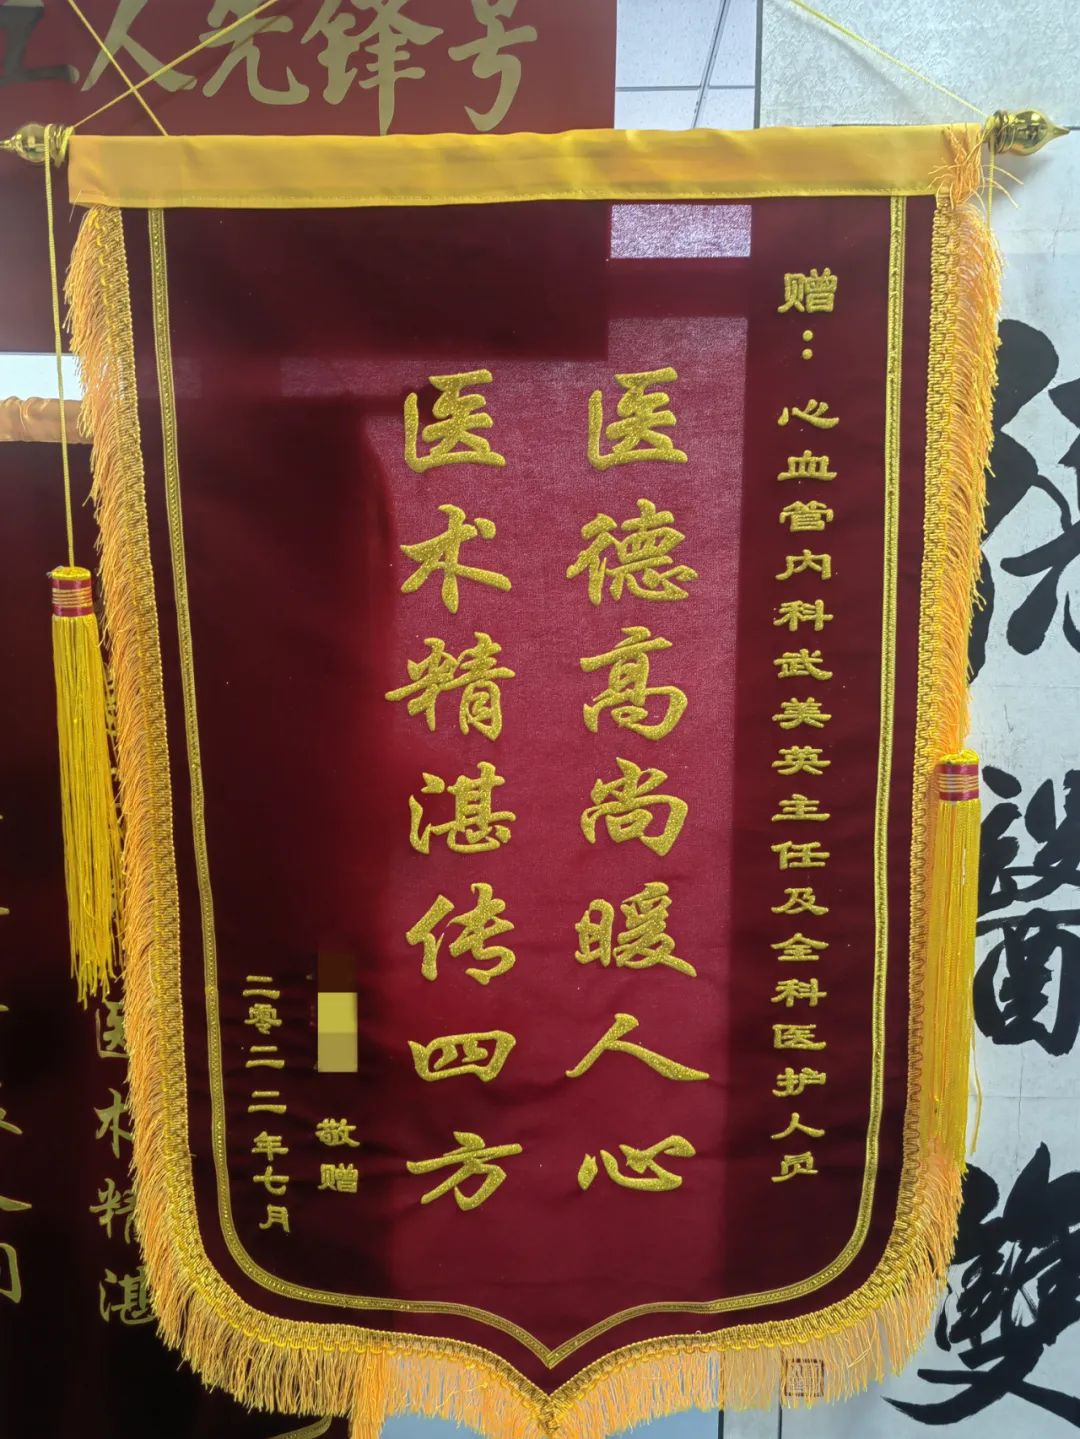 工人先锋号
赠：心血管内科武美英主任及全科医护人员
医德高尚暖人心
医术精湛传四方
敬赠
二零二二年七月
医术精湛
醫
雙